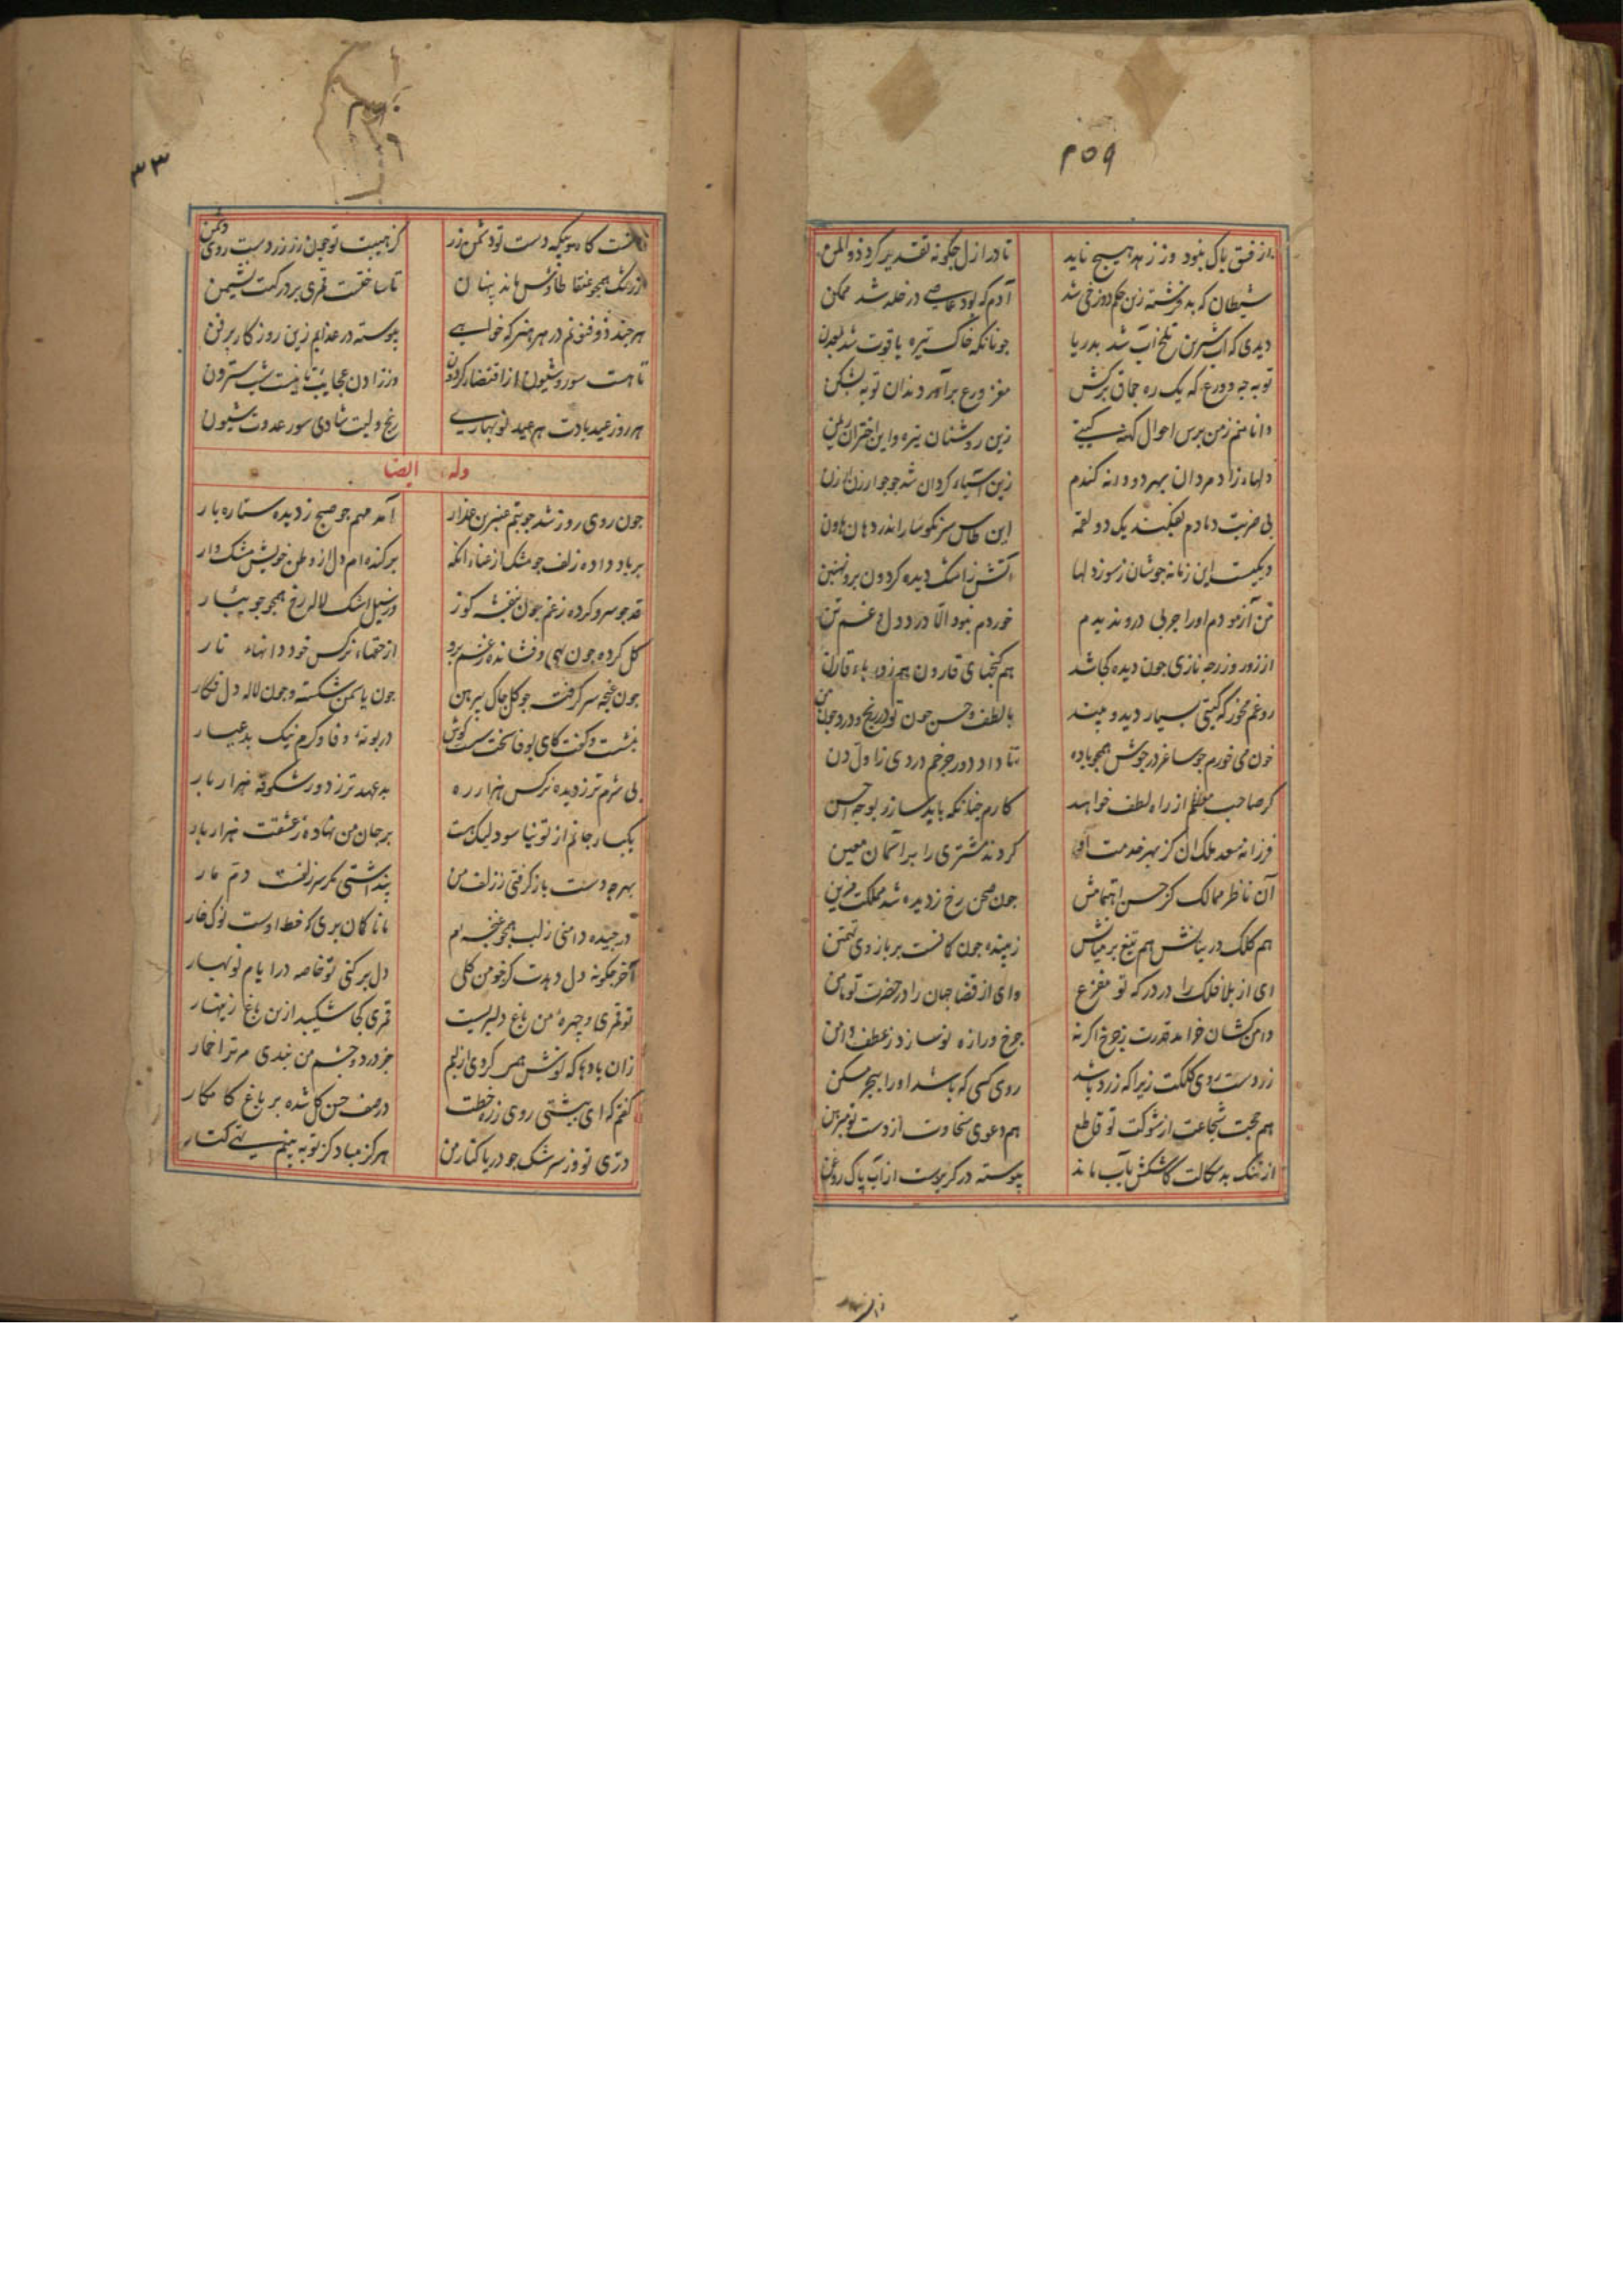 ۲۵۹
از فسق باک نبود وز زهد هیچ ناید
تا در ازل چگونه تقدیر کرد ذوالمن
شیطان که بد فرشته زین حکم دوزخی شد
آدم که بود عاصی در خلد شد ممکن
دیدی که آب شیرین تلخ آب شد بدریا
چونانکه خاک تیره یاقوت شد بمعدن
تو به چه و ورع که یک ره جماق برکش
مغز ورع برآور دندان توبه بشکن
دانا منم ز من پرس احوال کهنه گیتی
زین روشنان تیره واین اختران ریمن
دلها زاد مردان بهر دو دانه گندم
زین آسیاء گردان شد جو جو ارزن ارزن
بی ضربت دمادم نفکند یک دو لقمه
این طاس سرنگوسار اندر دهان هاون
دیگیست این زمانه جوشان ز سوز دلها
آتش ز اشک دیده گردون برو نهنبن
من آزمودم او را چربی درو ندیدم
خوردم نبود الا درد دل و غم تن
از زور و زر چه نازی چون دیده کجا شد
هم گنجهای قارون هم زور باء قارن
رو غم مخور که گیتی بسیار دید و بیند
با لطف و حسن چون تو در رنج و درد چون من
خون می خورم چو ساغر در جوش همچو باده
تا داد دور چرخم دردی ز اول دن
گر صاحب معظم از راه لطف خواهد
کارم چنانکه باید سازد بوجه احسن
فرزانه سعد ملک آن کز بهر خدمت او
کردند مشتری را بر آسمان معین
آن ناظر ممالک کز حسن اهتمامش
چون صحن رخ ز دیده شد مملکت مزین
هم کلک در بنانش هم تیغ بر میانش
زیبنده چون کمانست بر بازوی تهمتن
ای از بلا فلک را در درگه تو مفزع
وای از قضا جهان را در حضرت تو مامن
دامن کشان خرامد قدرت ز چرخ اگر نه
چرخ دراز ه نو سازد ز عطف دامن
زردست روی کلکت زیرا که زرد باشد
روی کسی که باشد او را ببحر مسکن
هم حجت شجاعت از شوکت تو قاطع
هم دعوی سخاوت از دست تو مبرهن
از ننگ بد سگالت کاشکش بآب ماند
پیوسته در گریزست از آب پاک روغن
۳۳
کز هیبت تو چون زر زردست روی دشمن
از رشک همچو عنقا طاوس ماند پنهان
تا ساختست قمری بر درگهت نشیمن
هر چند ذوفنونم در هر هنر که خواهی
پیوسته در عذابم زین روزگار پر فن
تا هست سور و شیون از اقتضاء گردون
وز زادن عجایب تا نیست شب سترون
هر روز عید بادت هم عید نوبهاری
رنج ولیت شادی سور عدوت شیون
وله ایضا
چون روی روز شد چو بتم عنبرین عذار
آمد مهم چو صبح ز دیده ستاره بار
بر باد داده زلف چو مشک از عناء آنکه
برکنده ام دل از وطن خویش مشک وار
قد چو سرو کرده ز غم چون بنفشه کوز
وز سیل اشک لاله رخ همچو جویبار
گل کرده چون بهی و فشانده ز غم برو
از حقهاء نرگس خود دانهاء نار
چون غنچه سر گرفت چو گل چاک پیرهن
چون یاسمن شکسته و چون لاله دل فگار
بنشست و گفت کای بوفا سخت سست کوش
در بوته وفا و کرم نیک بد عیار
بی شرم تر ز دیده نرگس هزار ره
بد عهد تر ز دور شکوفه هزار بار
یکبار جانم از تو نیاسود لیک هست
بر جان من نهاده ز عشقت هزار بار
بهر چه دست باز گرفتی ز زلف من
پنداشتی مگر سر زلفست دم مار
در چیده دامنی ز لب همچو غنچه ام
مانا گمان بری که خط اوست نوک خار
آخر چگونه دل دهدت کز چو من گلی
دل بر کنی تو خاصه در ایام نوبهار
تو قمری و چهره من باغ دلبریست
قمری کجا شکیبد ازین باغ زینهار
زان بادها که نوش همی کردی از لبم
جز درد و چشم من نبدی مر ترا خمار
گفتم که ای بهشتی روی ز ره خطت
در صف حسن گل شده بر باغ کامکار
دری تو وز سرشک چو دریا کنار من
هرگز مباد کز تو به بینم تهی کنار